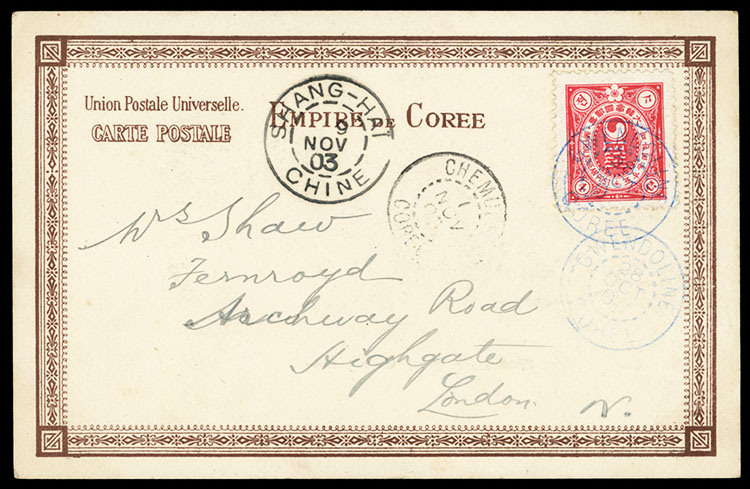 Union Postale Universelle.
CARTE POSTALE
EMPIRE DE COREE
SHANG-HAI
9
NOV
03
CHINE
CHEMUL
1
NOV
COREE
COREE
GWENDOLINE
Mrs Shaw
Fernroyd
Archway Road
Highgate
London. N.